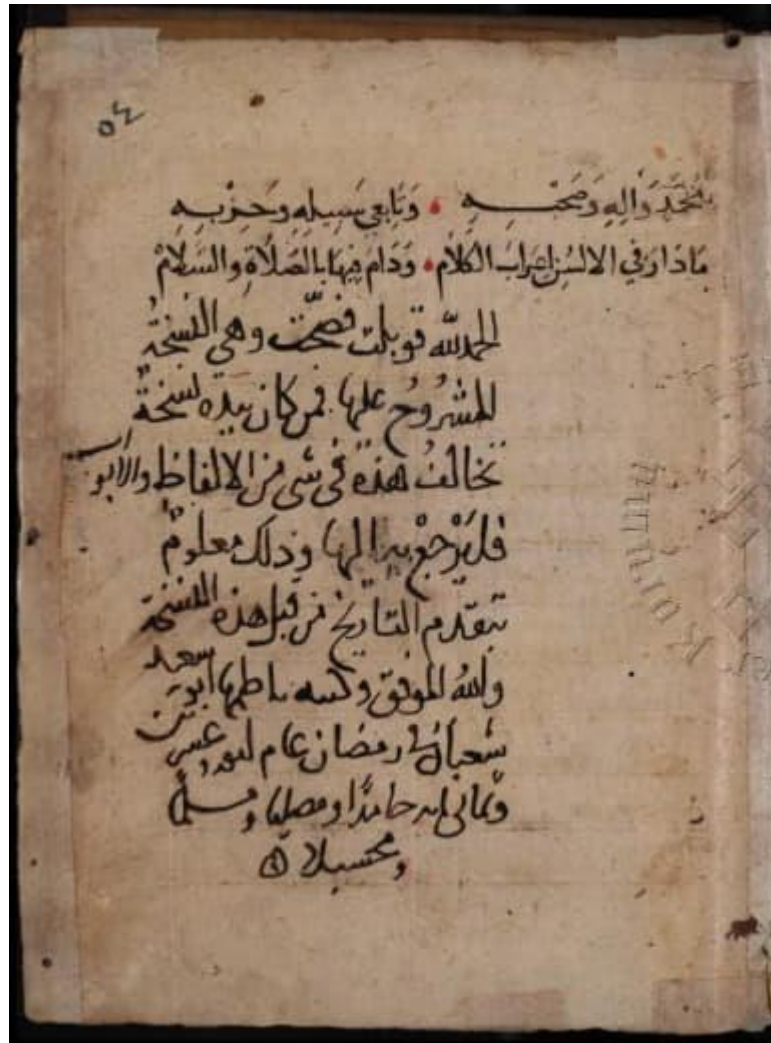 ٥٤
محمد وَآلِهِ وَصَحْبِهِ • وَتَابِعِي سَبِيلِهِ وَحِزْبِهِ
مَا دَارَ فِي الالسُنِ إعرَابُ الكَلَام • وَدَامَ فِيهَا بِالصَّلَاةِ وَالسَّلَامْ
الحمد لله قوبلت فصحّت وهي النسخةُ
المشرُوحُ عليها فمن كان بيده نسخةٌ
تخالفُ هذه في شي من الالفاظ والابواب
فليَرْجعْ بها اليها وذلك معلومٌ
بتقدم التاريخ من قبل هذه النسخة
والله الموفق وكتبه ناظمها ابو سعيد
شعبان في رمضان عام
وثماني مايه حامدًا ومصليًا ومسلمًا
ومحسبلا